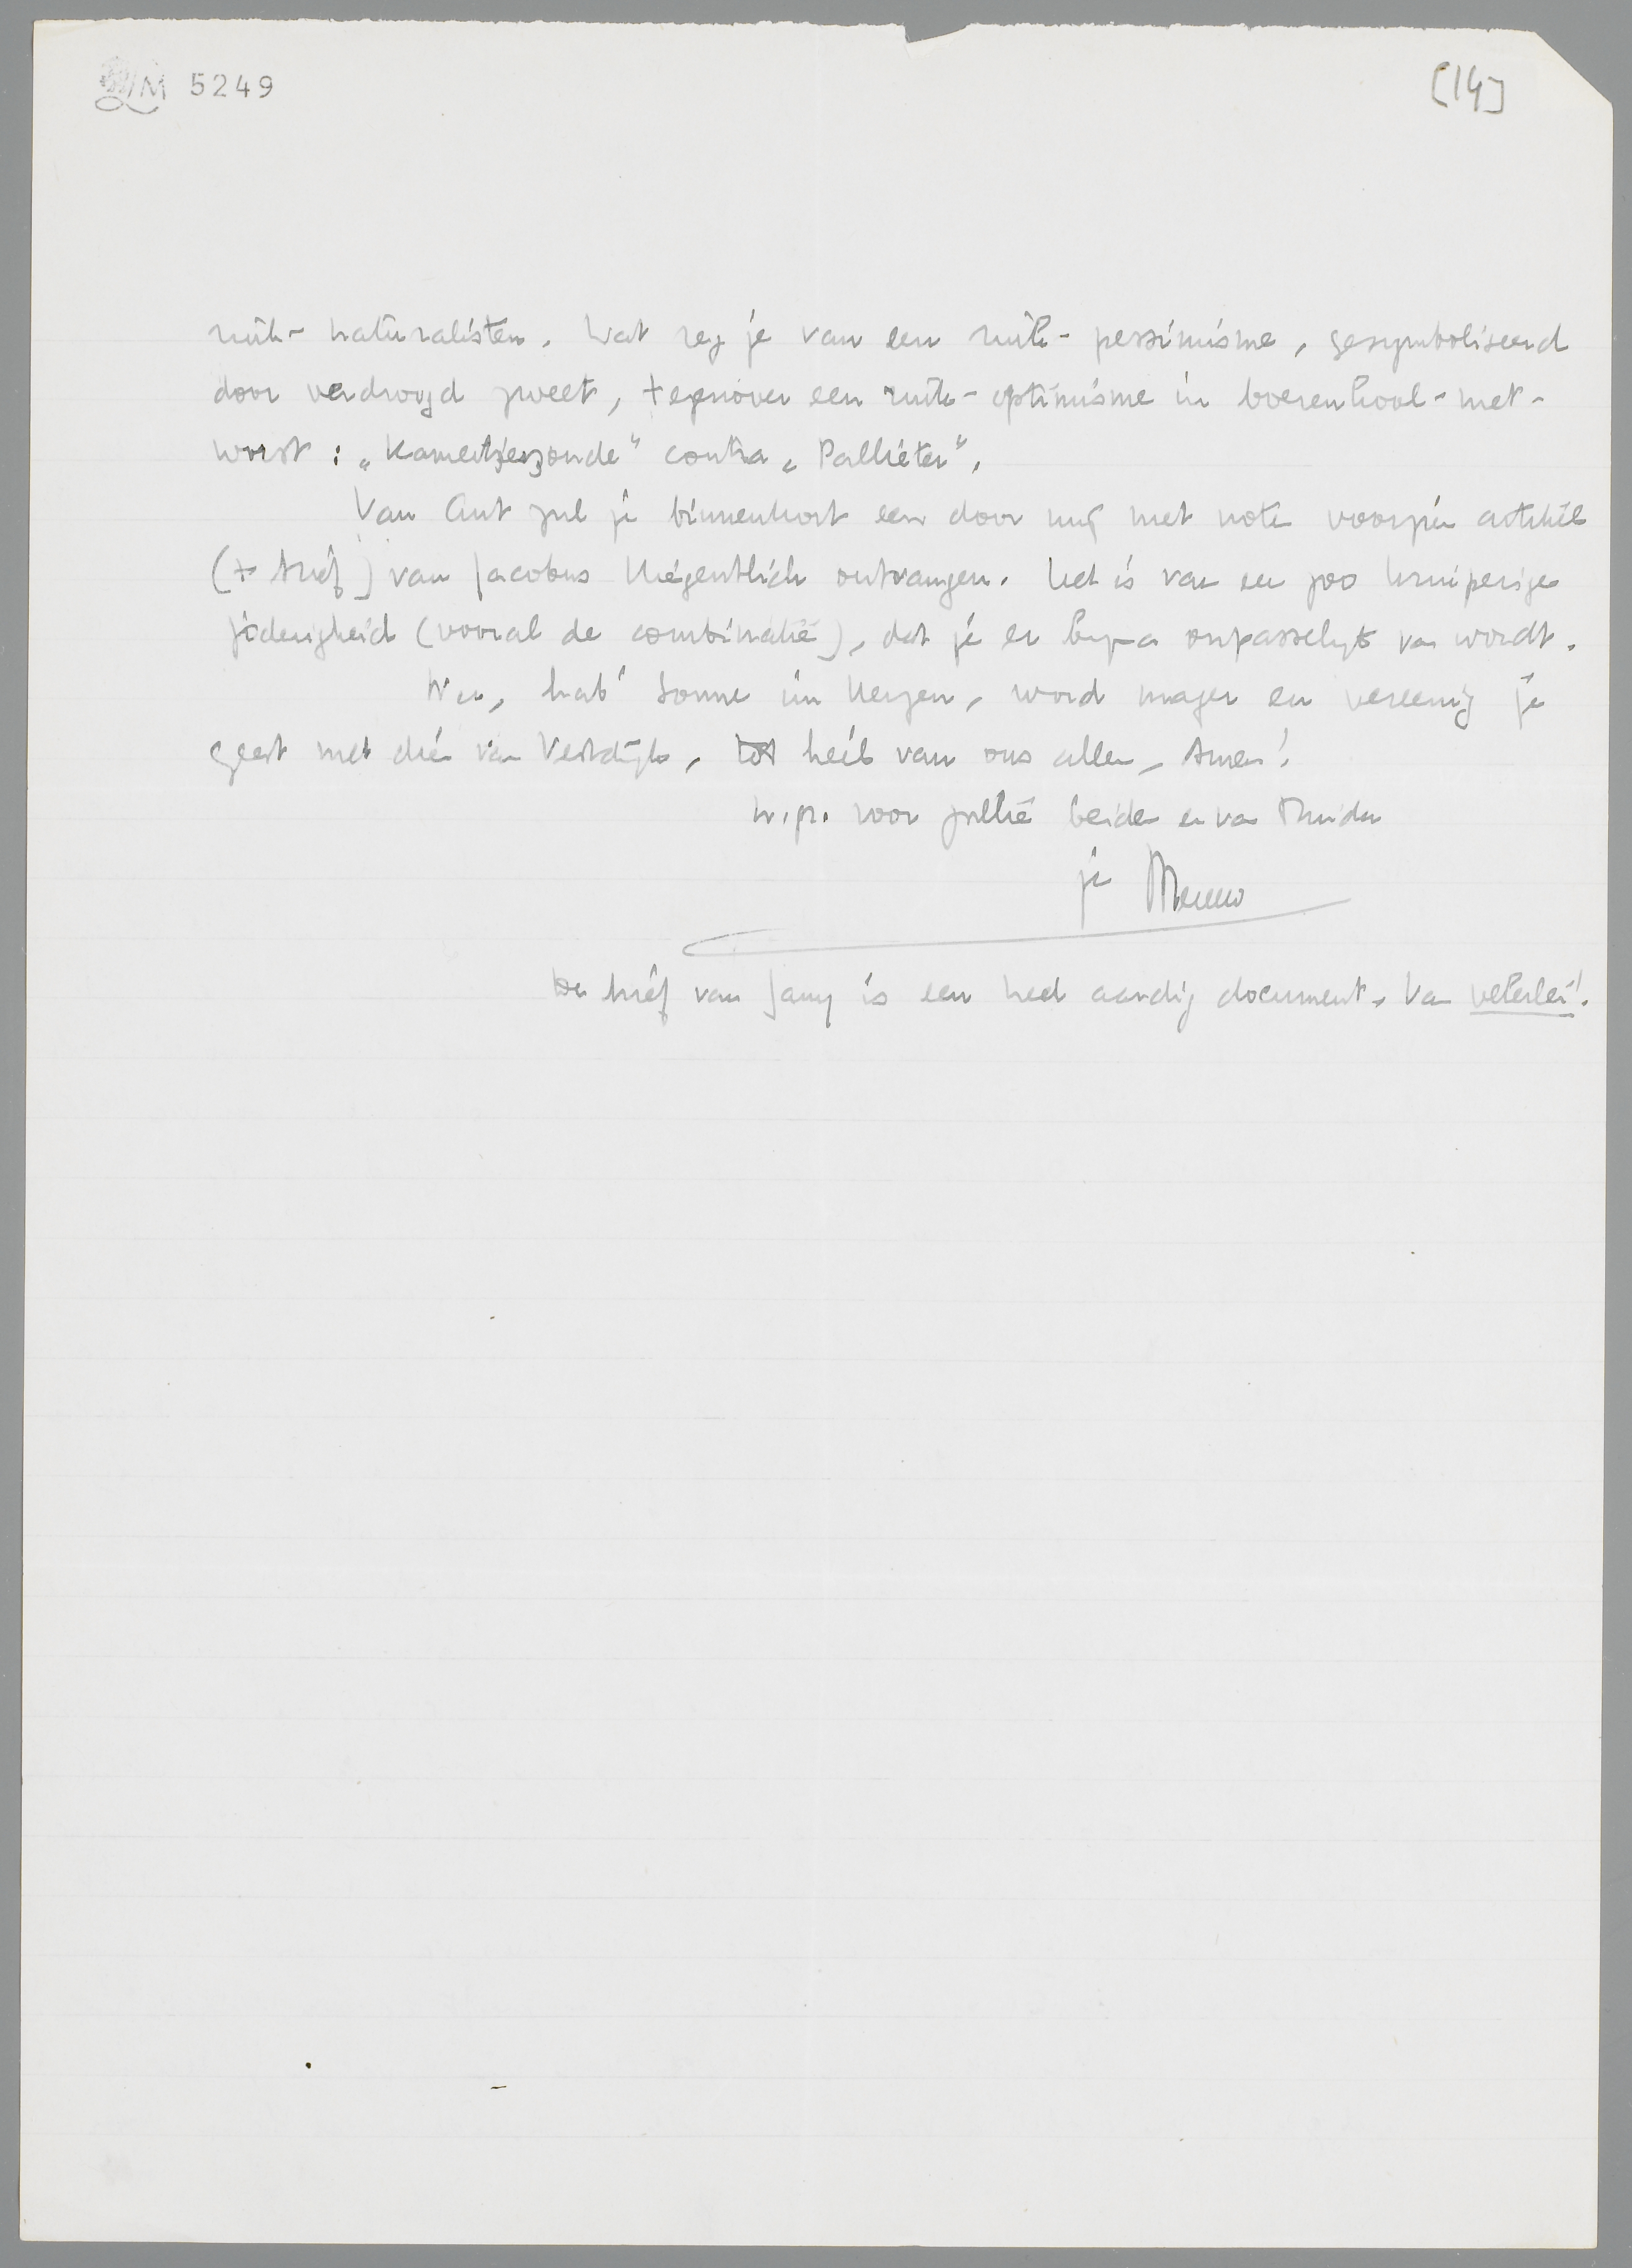 LM 5249
[14]
ruik-naturalisten. Wat zeg je van een ruik-pessimisme, gesymboliseerd
door verdroogd zweet, tegenover een ruik-optimisme in boerenkool-met-
worst: „Kameitjeszonde" contra „Pallieter".
Van Ant zul je binnenkort een door mij met noten voorzien artikel
(+ brief) van Jacobus Hegentlich ontvangen. Het is van een zoo kruiperige
joderigheid (vooral de combinatie), dat je er bijna onpasselijk van wordt.
Nu, hab' Sonne im Herzen, word mager en vereenig je
geest met dien van Vestdijk, tot heil van ons allen, Amen!
h.gr. voor jullie beiden en van
je Menno
De brief van Jany is een heel aardig document. Van velerlei!